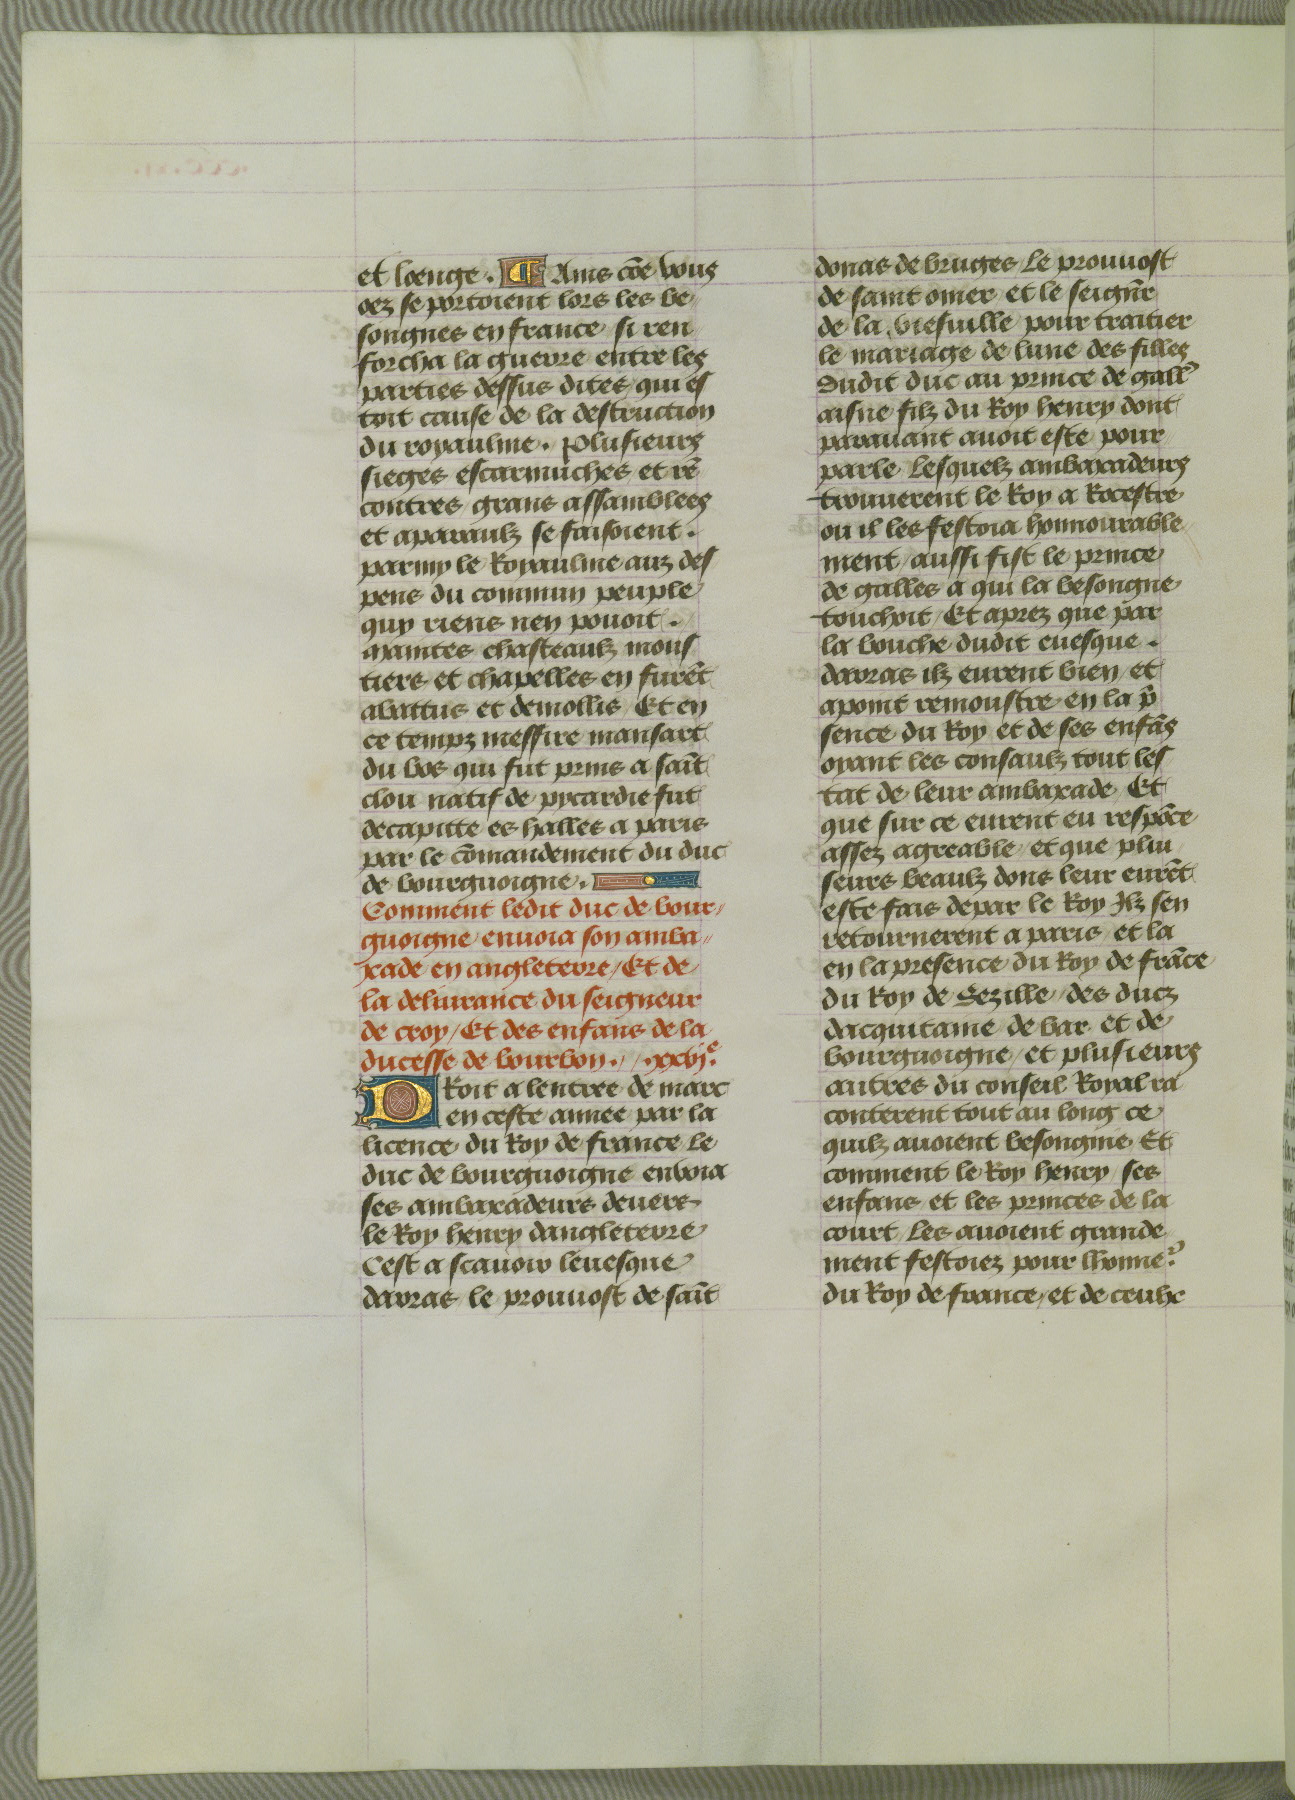 et loenge. ¶ Ains cõe vous
oez se portoient lors les be
songnes en france / si ren
forcha la guerre entre les
parties dessus dites, qui es
toit cause de la destruction
du royaulme. Plusieurs
sieges escarmuches et rẽ
contres, grans assamblees
et aparaulz se faisoient.
parmy le Royaulme aux des
pens du commun peuple
quy riens nen pouoit.
maintes chasteaulz mous
tiers et chapelles en furẽt
abattus et demollis, Et en
ce tempz messire mansart
du bos qui fut prins a saĩt
clou natif de pycardie fut
decapitte es halles a paris
par le cõmandement du duc
de bourguoigne.
Comment ledit duc de bour-
guoigne enuoia son amba
xade en angleterre / Et de
la deliurance du seigneur
de croy / Et des enfans de la
ducesse de bourbon. / .xxvjᵉ.
DRoit a lentree de marc
en ceste annee par la
licence du Roy de france le
duc de bourguoigne envoia
ses ambaxadeurs deuers
le Roy henry dangleterre
Cest a scauoir leuesque
darras le prouuost de saĩt
donas de bruges le prouuost
de saint omer et le seignr̃
de la viesuille pour traitier
le mariage de lune des filles
dudit duc au prince de gall'
aisne filz du Roy henry dont
parauant auoit este pour
parle Lesquelz ambaxadeurs
trouuerent le Roy a Rocestre
ou il les festoia honnourable
ment / aussi fist le prince
de galles a qui la besongne
touchoit / Et aprez que par
la bouche dudit euesque.
darras ilz eurent bien et
apoint remoustre en la p̃
sence du Roy et de ses enfãs
oyant les consaulz tout les
tat de leur ambaxade Et
que sur ce eurent eu respõce
assez agreable / et que plui
seurs beaulz dons leur eurẽt
este fais depar le Roy Ilz sen
retournerent a paris et la
en la presence du Roy de frãce
du Roy de Sezille / des ducz
dacquitaine de bar et de
bourguoigne / et plusieurs
autres du conseil Royal ra
conterent tout au long ce
quilz auoient besongnie Et
comment le Roy henry ses
enfans et les princes de la
court les auoient grande
ment festoiez pour lhonneʳ.
du Roy de france / et de ceulx